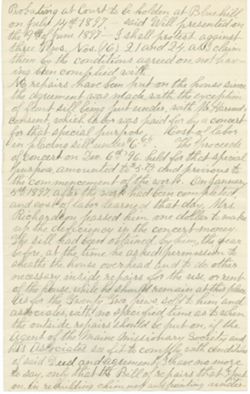 Probating at Court to be holden at Bluehill
on Sept 14th 1897. said Will presented on
the 9th of June 1897 I shall protest against
three Pews. Nos. 16, 21 and 24. all claim
them by the conditions agreed on not hav-
ing been complied with.
No repairs have been put on the house since
the agreement was made, with the exception
of front sill being put under, with
consent, which labor was paid for by a concert
for that special purpose. Cost of labor
in placing sill under The proceeds
of Concert on Dec 6th 96. held for that special
purpose, amounted to and previous to
the commencement of the work. On January
1897 after the work had been completed
and cost of labor learned that day, Mrs.
Richardson passed him one dollar to make
up the deficiency in the concert money.
The sill had been obtained by him, the year
before, at the time he asked permission to
sheath the house overhead and to do other
necessary inside repairs for the use or rent
of the house, while he should remain at this place.
As for the Twenty Two pews sold to him and
associates, with no specified time as to when
the outside repairs should be put on, if the
agent of the Maine Missionary Society and
his Associates see fit to comply with conditions
of said Deed and agreement, I have no more
to say, only that the Bill of repairs that I put
on in rebuilding chimney and painting under